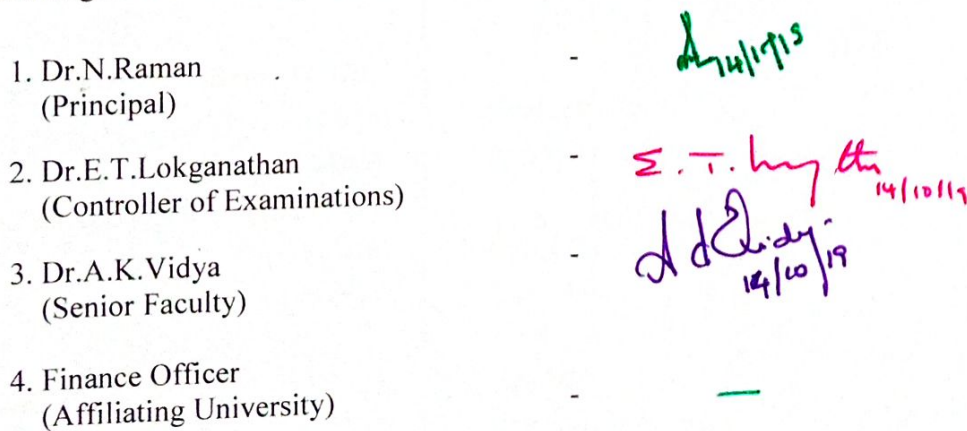 1. Dr.N.Raman -
(Principal)
2. Dr.E.T.Lokganathan - E. T.
(Controller of Examinations) 14/10/19
3. Dr.A.K.Vidya -
(Senior Faculty) 14/10/19
4. Finance Officer
(Affiliating University) - —